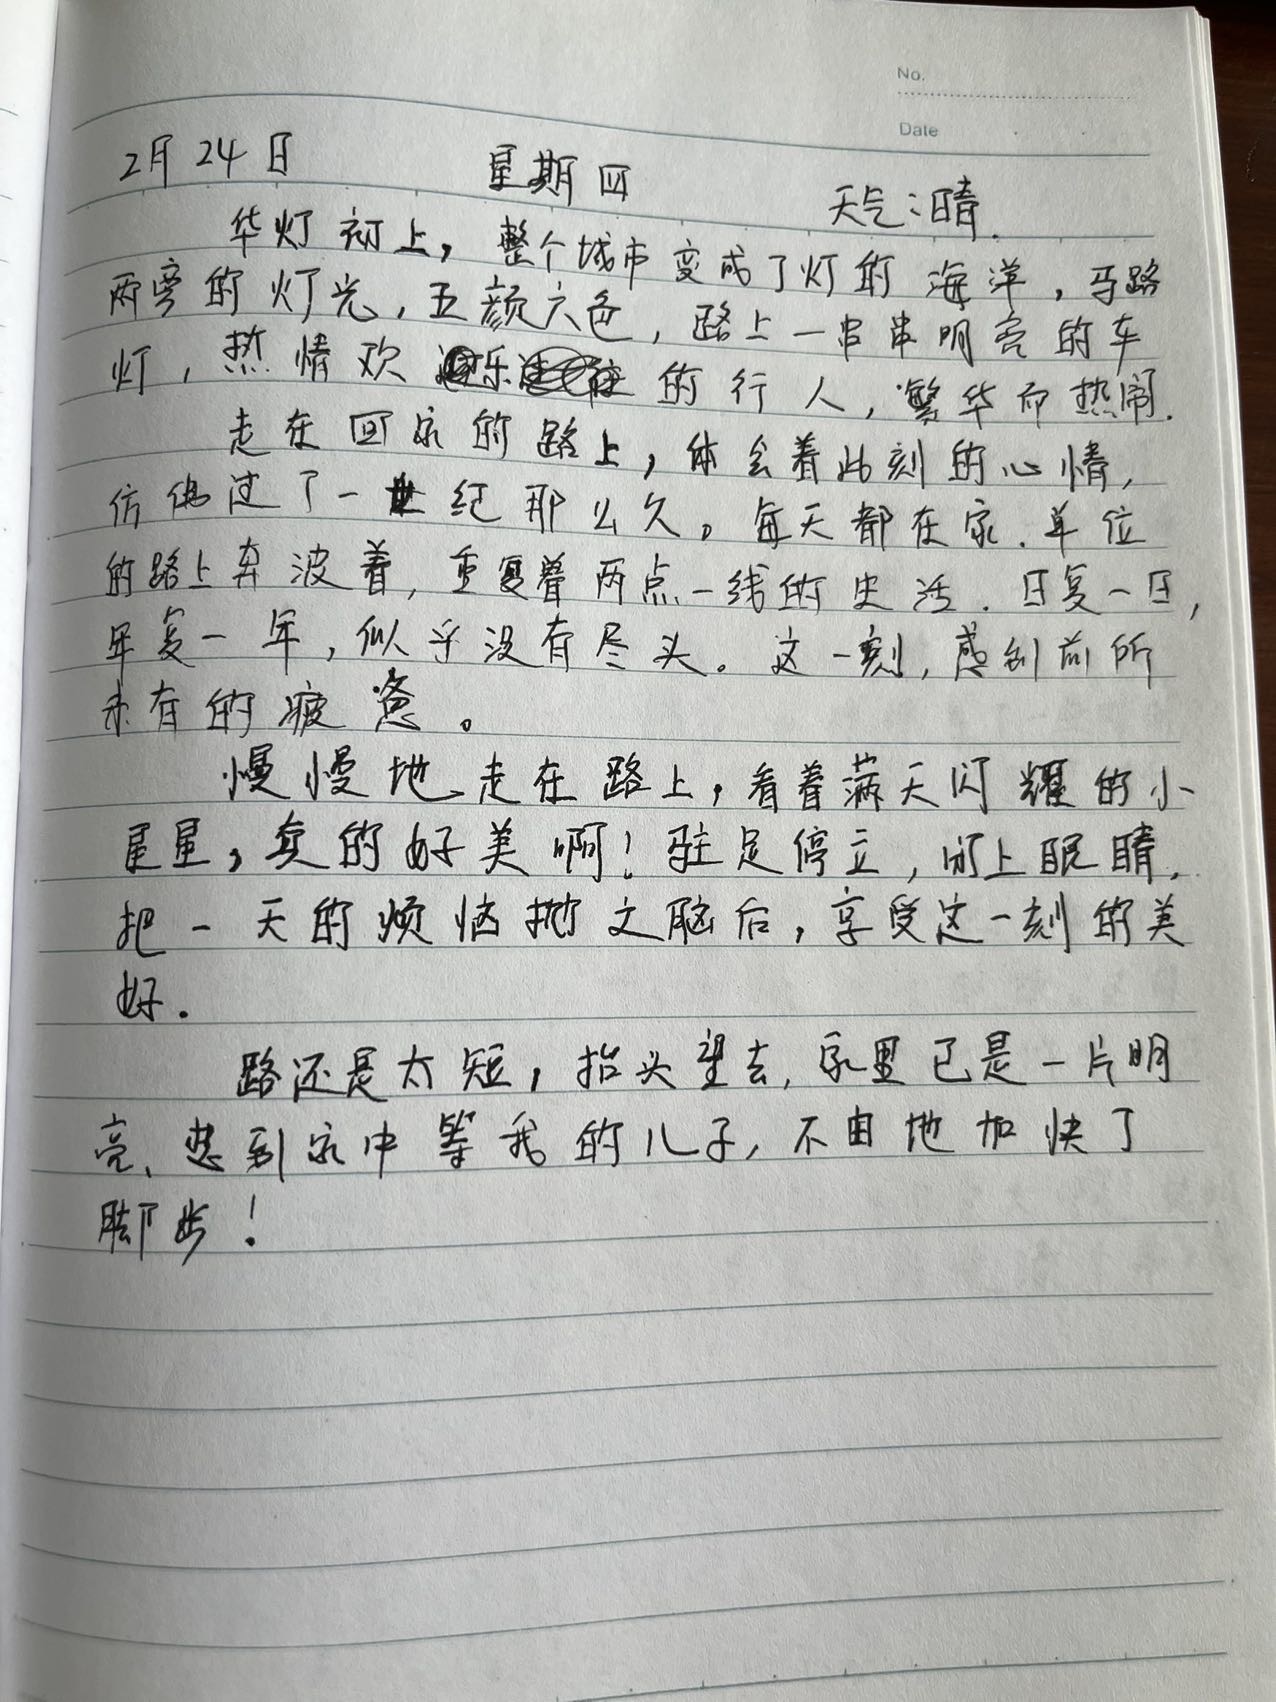 No.
Date
2月24日 星期四 天气:晴.
华灯初上，整个城市变成了灯的海洋，马路
两旁的灯光，五颜六色，路上一串串明亮的车
灯，热情欢乐的行人，繁华而热闹.
走在回家的路上，体会着此刻的心情，
仿佛过了一世纪那么久。每天都在家.单位
的路上奔波着，重复着两点一线的生活.日复一日，
年复一年，似乎没有尽头。这一刻，感到前所
未有的疲惫。
慢慢地走在路上，看着满天闪耀的小
星星，真的好美啊！驻足停立，闭上眼睛，
把一天的烦恼抛之脑后，享受这一刻的美
好.
路还是太短，抬头望去，家里已是一片明
亮、想到家中等我的儿子，不由地加快了
脚步！